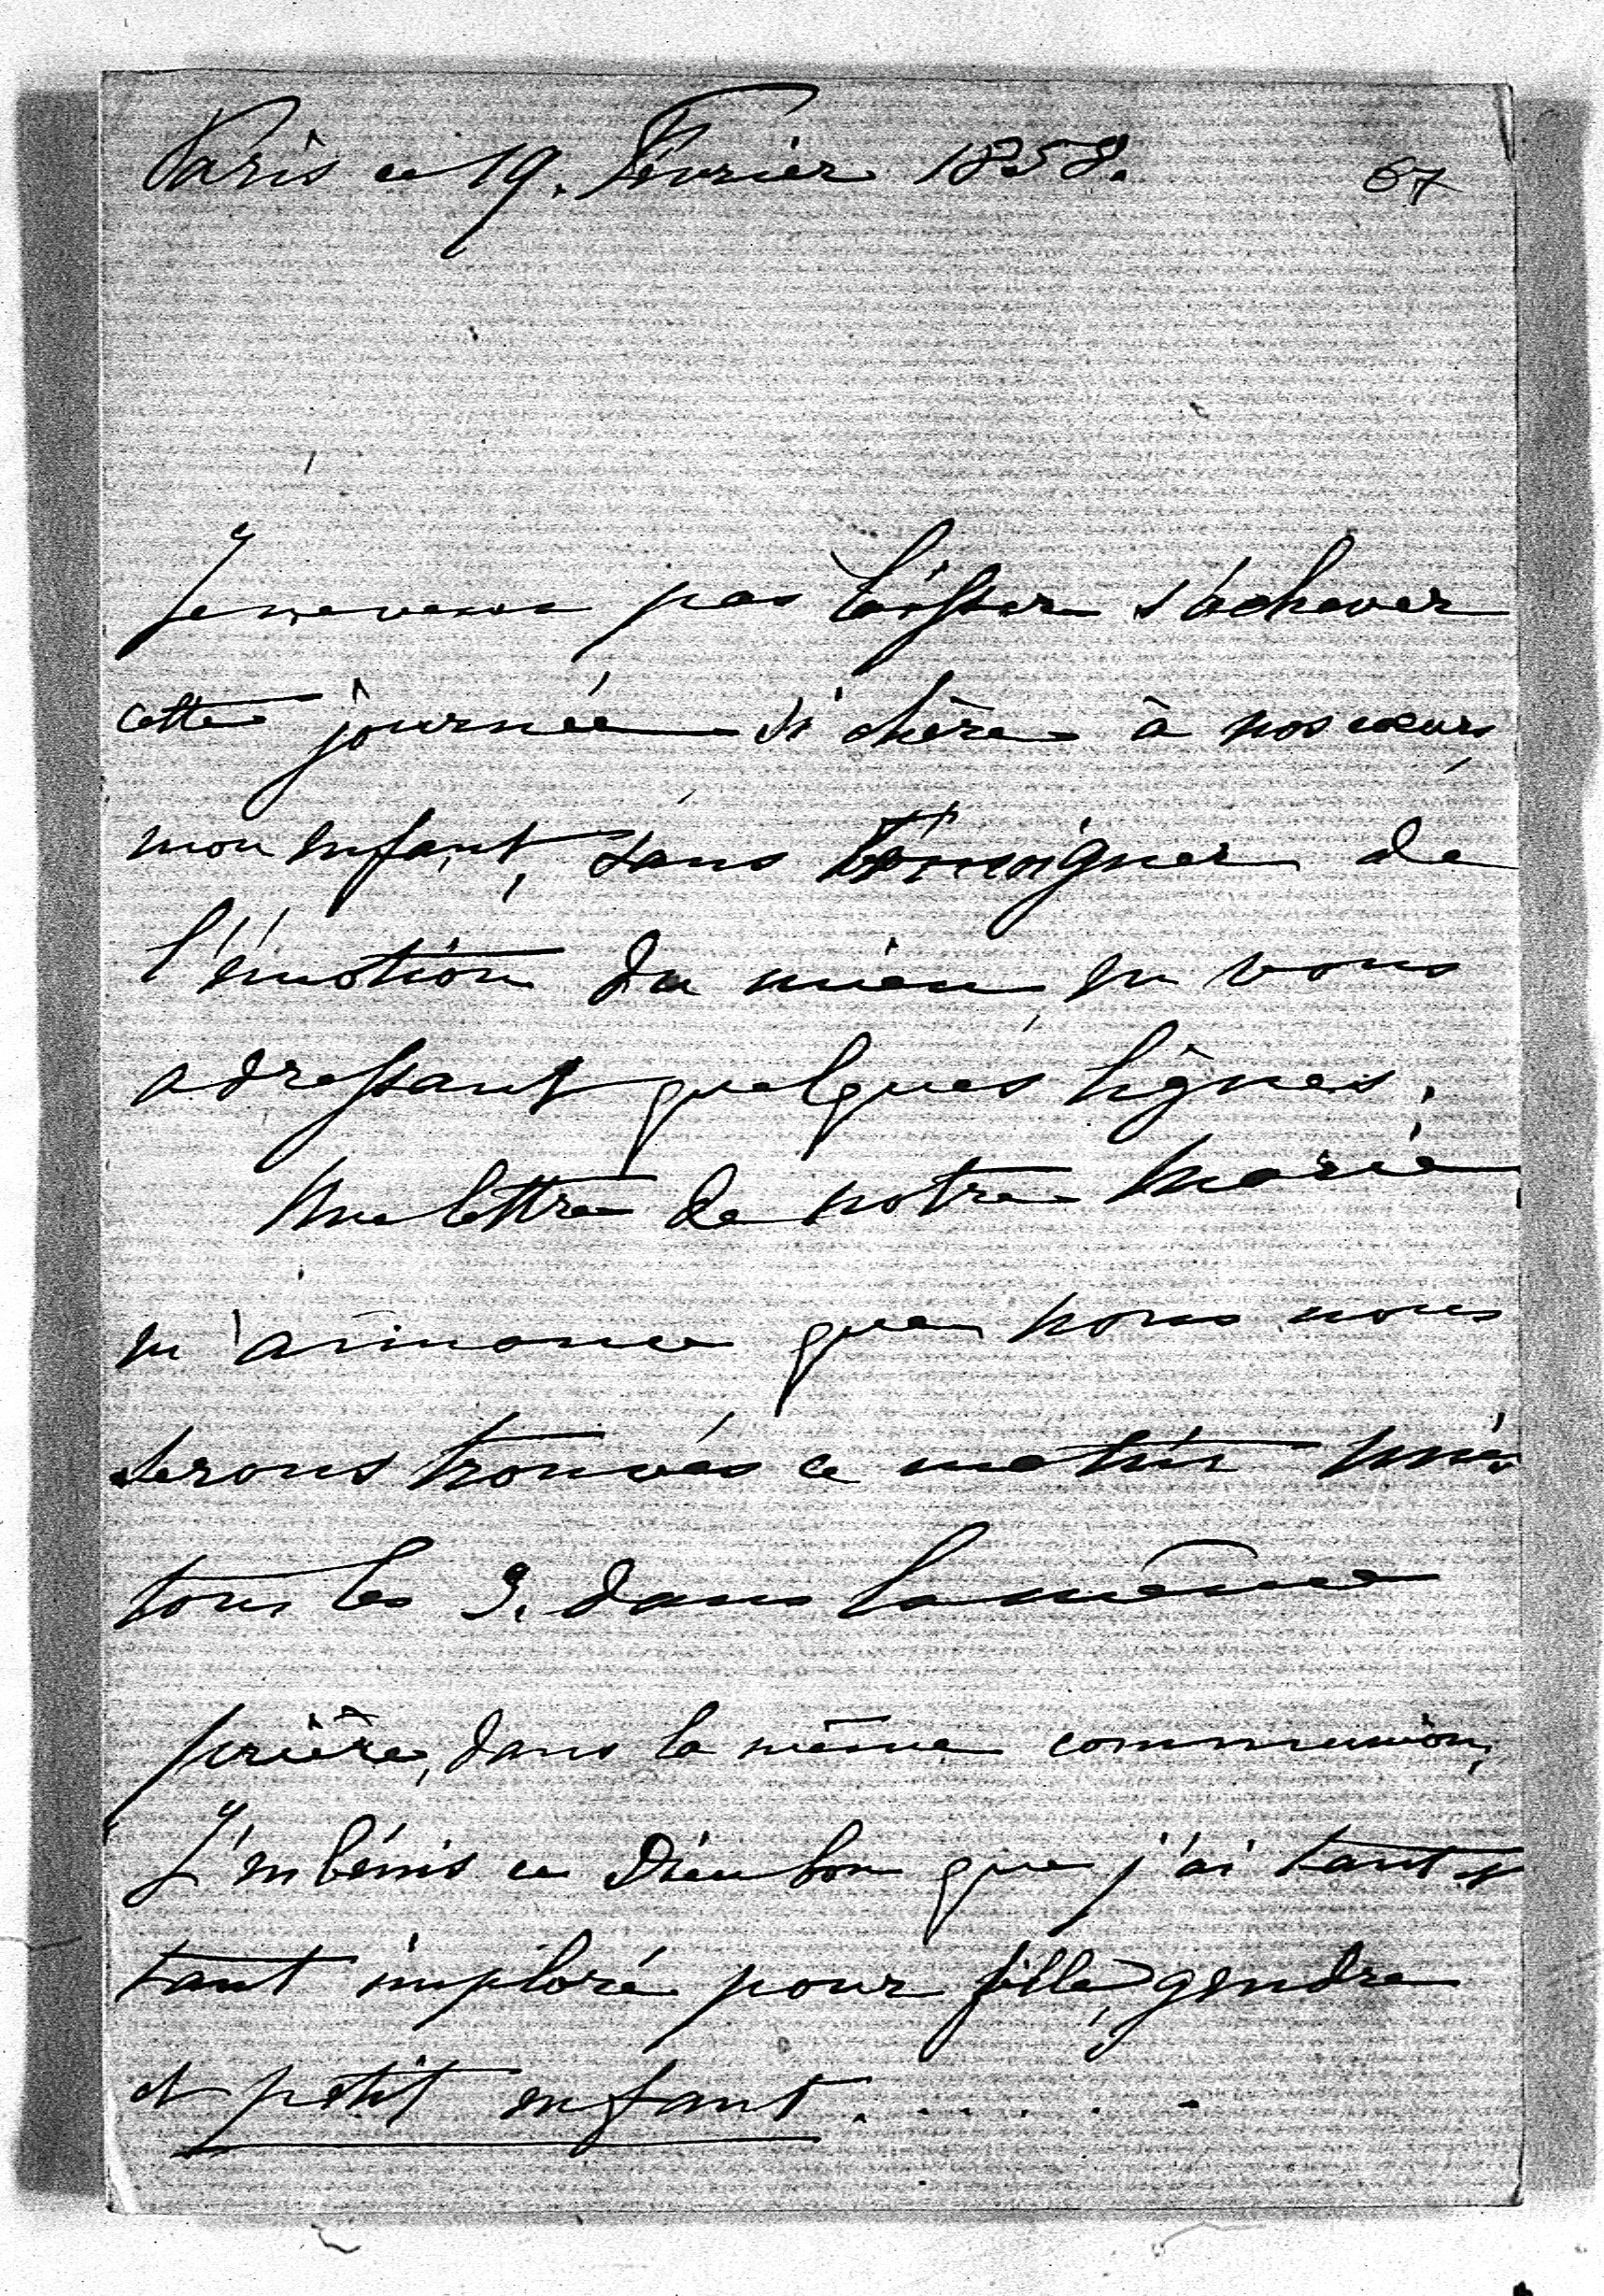 Paris ce 19. Février 1858.
67
Je ne veux pas laisser s'achever
cette journée si chère à nos cœurs,
mon enfant, sans témoigner de
l'émotion du mien, en vous
adressant quelques lignes.
Une lettre de notre Marie,
m'annonce que nous nous
serons trouvés ce matin unis
tous les 3. dans la même
prière, dans la même communion,
J'en bénis ce Dieu bon que j'ai tant et
tant imploré pour fille, gendre
et petit enfant . . . . . .